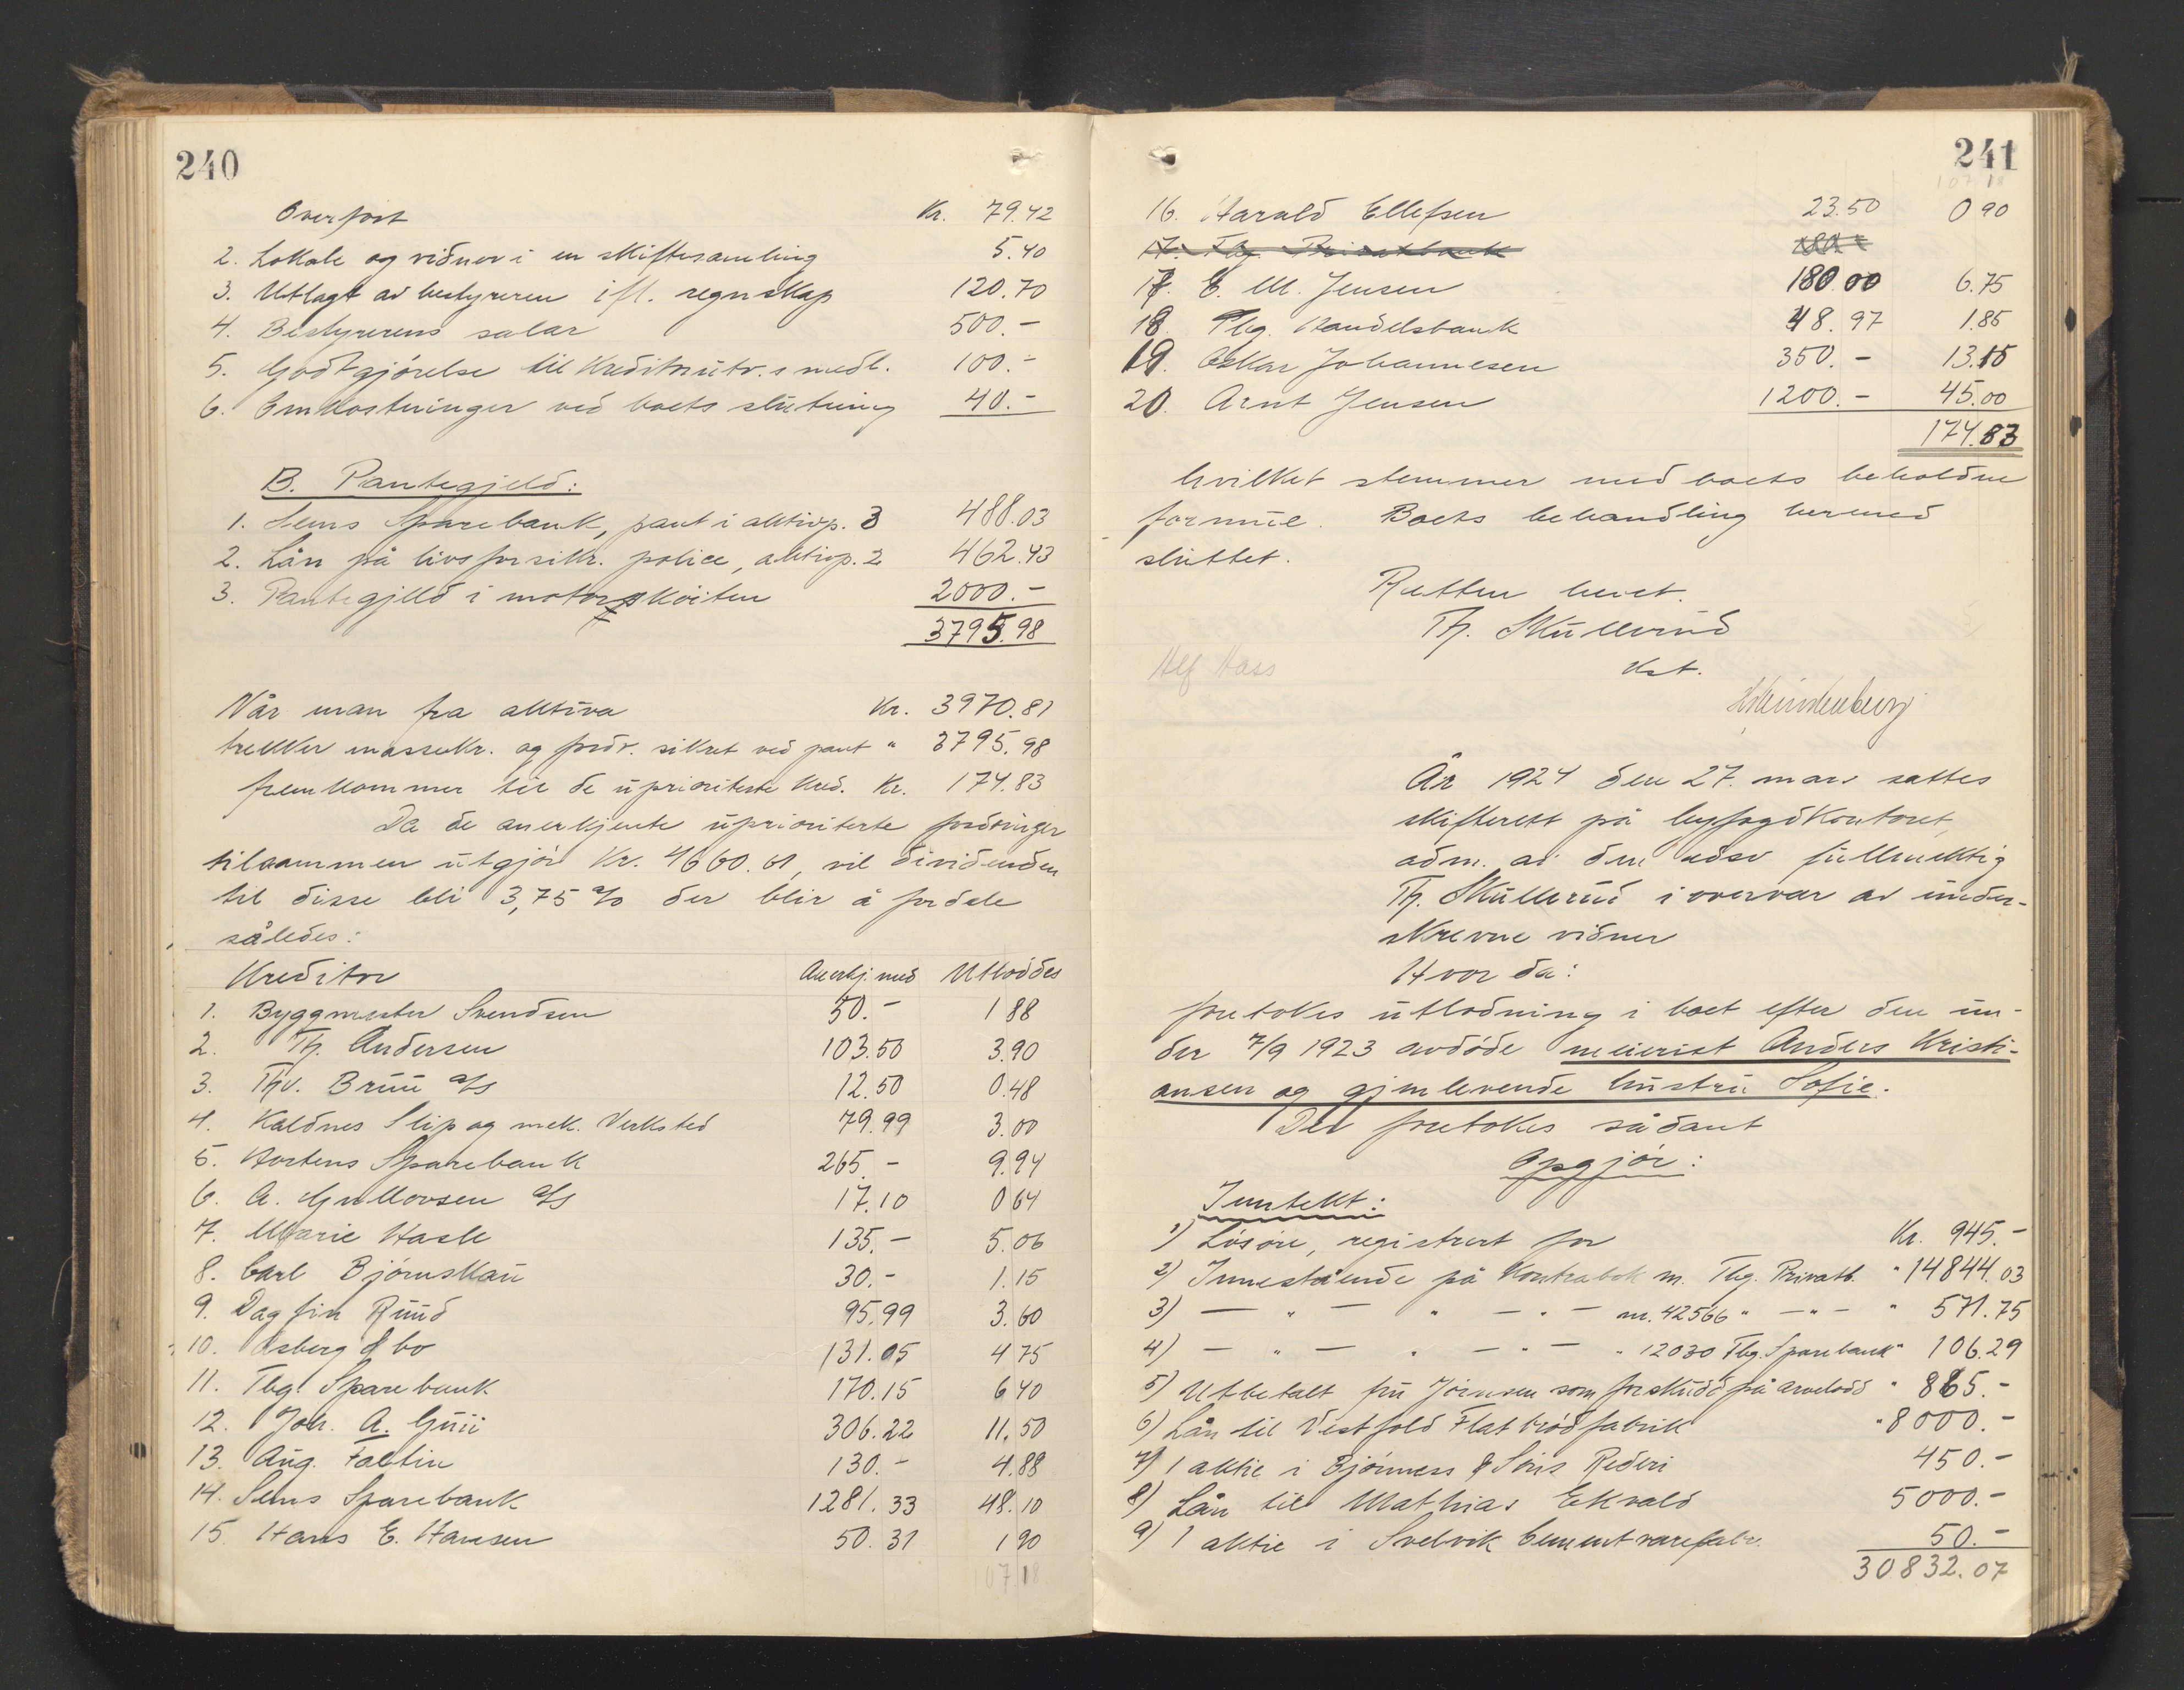 240
Overført Kr. 79.42
2. Lokale og vidner i en skiftesamling 5.40
3. Utlagt av bestyreren ifl. regnskap 120.70
4. Bestyrerens salar 500.-
5. Godtgjörelse til Kreditorutv.s medl. 100.-
6. Omkostninger ved boets slutning 40.-
B. Pantegjeld:
1. Sems Sparebank, pant i aktivp. 3 488.03
2. Lån på livsforsikr. police, aktivp. 2 462.43
3. Pantegjeld i motorskoiten 2000.-
3795.98
Når man fra aktiva Kr. 3970.81
trekker massekr. og fordr. sikret ved pant " 3795.98
fremkommer til de uprioriterte kred. Kr. 174.83
Da de anerkjente uprioriterte fordringer
tilsammen utgjör Kr. 4660.61, vil dividenden
til disse bli 3,75 % der blir å fordele
således:
Kreditor Anerkj. med Utloddes
1. Byggmester Svendsen 50.- 1 88
2. Th. Andersen 103.50 3.90
3. Thv. Bruu a/s 12.50 0.48
4. Kaldnes Slip og mek. Verksted 79.99 3.00
5. Hortens Sparebank 265.- 9.94
6. A. Gullovsen a/s 17.10 0 64
7. Marie Hasle 135.- 5.06
8. Carl Björnskau 30.- 1.15
9. Dagfin Ruud 95.99 3.60
10. Asberg & Co 131.05 4 75
11. Tbg. Sparebank 170.15 6 40
12. Joh. A. Guii 306.22 11.50
13. Aug. Faltin 130.- 4.88
14. Sems Sparebank 1281.33 48.10
15. Hans E. Hansen 50.31 1 90
107.18
241
107.18
16. Harald Ellefsen 23.50 0 90
17. Tbg. Privatbank
17. E. M. Jensen 180.00 6.75
18. Tbg. Handelsbank 48.97 1.85
19. Oskar Johannesen 350.- 13.15
20. Arnt Jensen 1200.- 45.00
174.83
hvilket stemmer med boets beholdne
formue. Boets behandling hermed
sluttet.
Retten hevet.
Th. Skullerud
kst.
Alf Aass
År 1924 den 27. mars sattes
skifterett på byfogdkontoret,
adm. av den edsv fullmektig
Th. Skullerud i overvær av under-
skrevne vidner
Hvor da:
foretokes utlodning i boet efter den un-
der 7/9 1923 avdöde meierist Anders Kristi-
ansen og gjenlevende hustru Sofie.
Det foretokes sådant
Opgjör:
Inntekt:
1) Lösöre, registrert for Kr. 945.-
2) Innestående på Kontrabok m. Tbg. Privatb. " 14844.03
3) — " — " — " — nr. 42566 " — " — " 571.75
4) — " — " — " — " 12030 Tbg. Sparebank " 106.29
5) Utbetalt fru Jörnsen som forskudd på arvelodd " 865.-
6) Lån til Vestfold Flatbrödfabrik " 8000.-
7) 1 aktie i Björnness & Sons Rederi 450.-
8) Lån til Mathias Ekvald 5000.-
9) 1 aktie i Svelvik Cementvarefabr. 50.-
30832.07